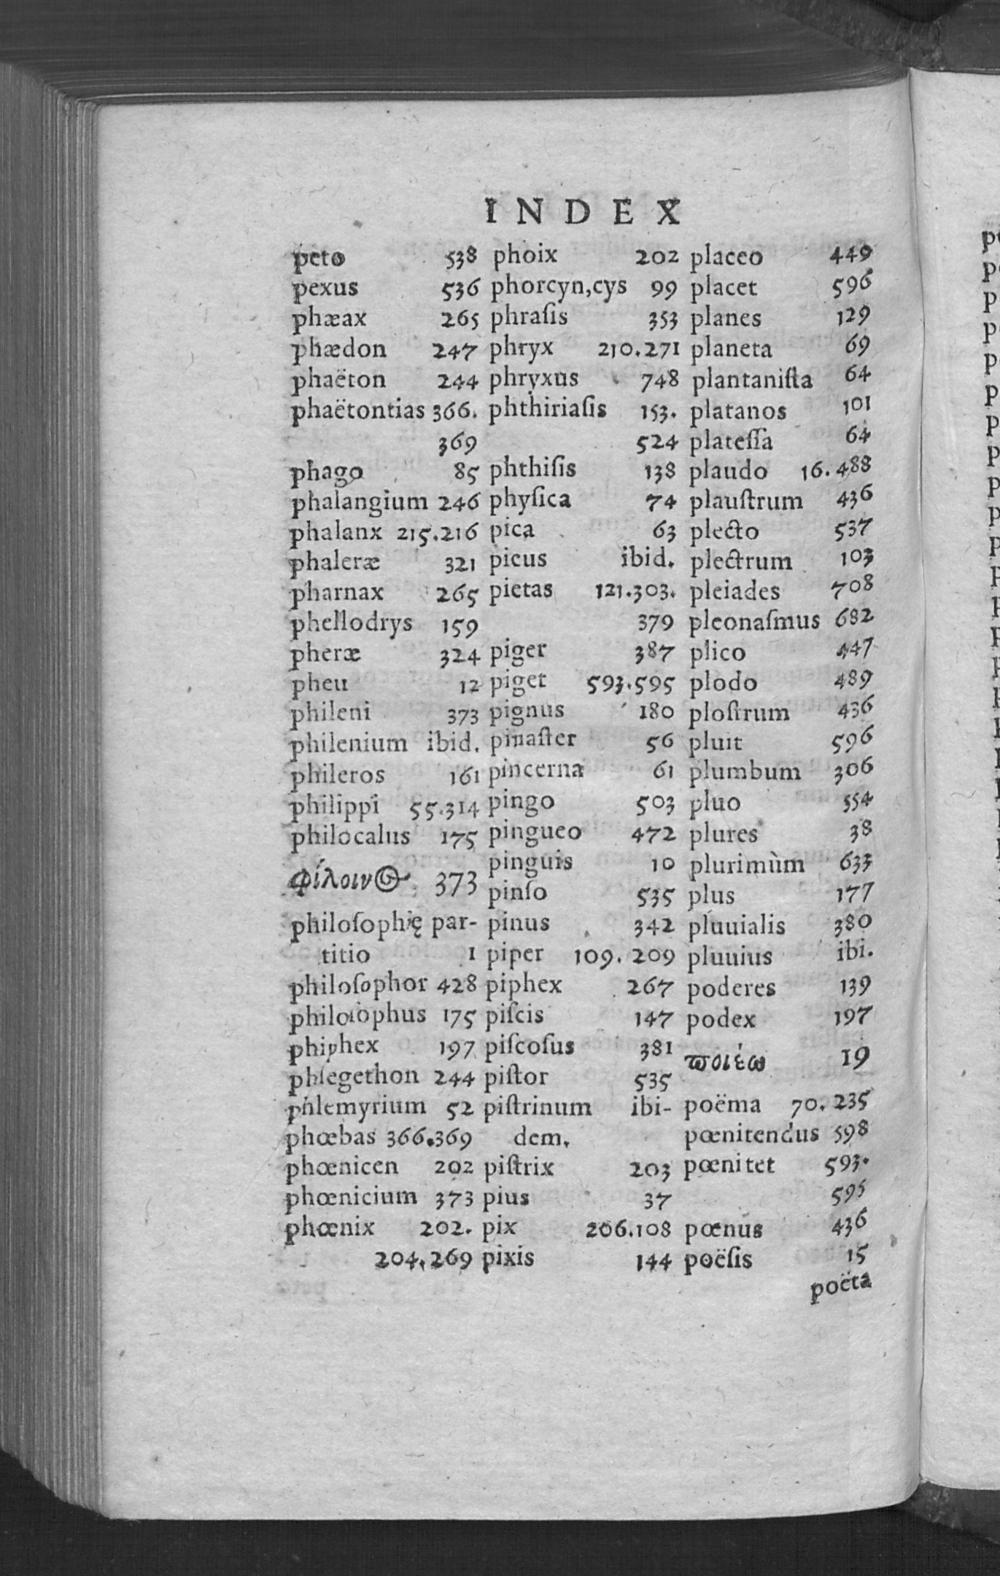 INDEX
peto 538
pexus 536
phæax 265
phædon 247
phaëton 244
phaëtontias 366.
369
phago 85
phalangium 246
phalanx 215.216
phaleræ 321
pharnax 265
phellodrys 159
pheræ 324
pheu 12
phileni 373
philenium ibid.
phileros 161
philippi 55.314
philocalus 175
φίλοινος 373
philoſophię par-
titio 1
philoſophor 428
philoſophus 175
phiphex 197
phlegethon 244
phlemyrium 52
phœbas 366.369
phœnicen 202
phœnicium 373
phœnix 202.
204.269
phoix 202
phorcyn,cys 99
phraſis 353
phryx 210.271
phryxus 748
phthiriaſis 153.
524
phthiſis 138
phyſica 74
pica 63
picus ibid.
pietas 121.303.
379
piger 387
piget 593.595
pignus 180
pinaſter 56
pincerna 61
pingo 503
pingueo 472
pinguis 10
pinſo 535
pinus 342
piper 109.209
piphex 267
piſcis 147
piſcoſus 381
piſtor 535
piſtrinum ibi-
dem.
piſtrix 203
pius 37
pix 206.108
pixis 144
placeo 449
placet 596
planes 129
planeta 69
plantaniſta 64
platanos 101
plateſſa 64
plaudo 16.488
plauſtrum 436
plecto 537
plectrum 103
pleiades 708
pleonaſmus 682
plico 447
plodo 489
ploſtrum 436
pluit 596
plumbum 306
pluo 554
plures 38
plurimùm 633
plus 177
pluuialis 380
pluuius ibi.
poderes 139
podex 197
ϖοιέω 19
poëma 70.235
pœnitendus 598
pœnitet 593.
595
pœnus 436
poëſis 15
poëta